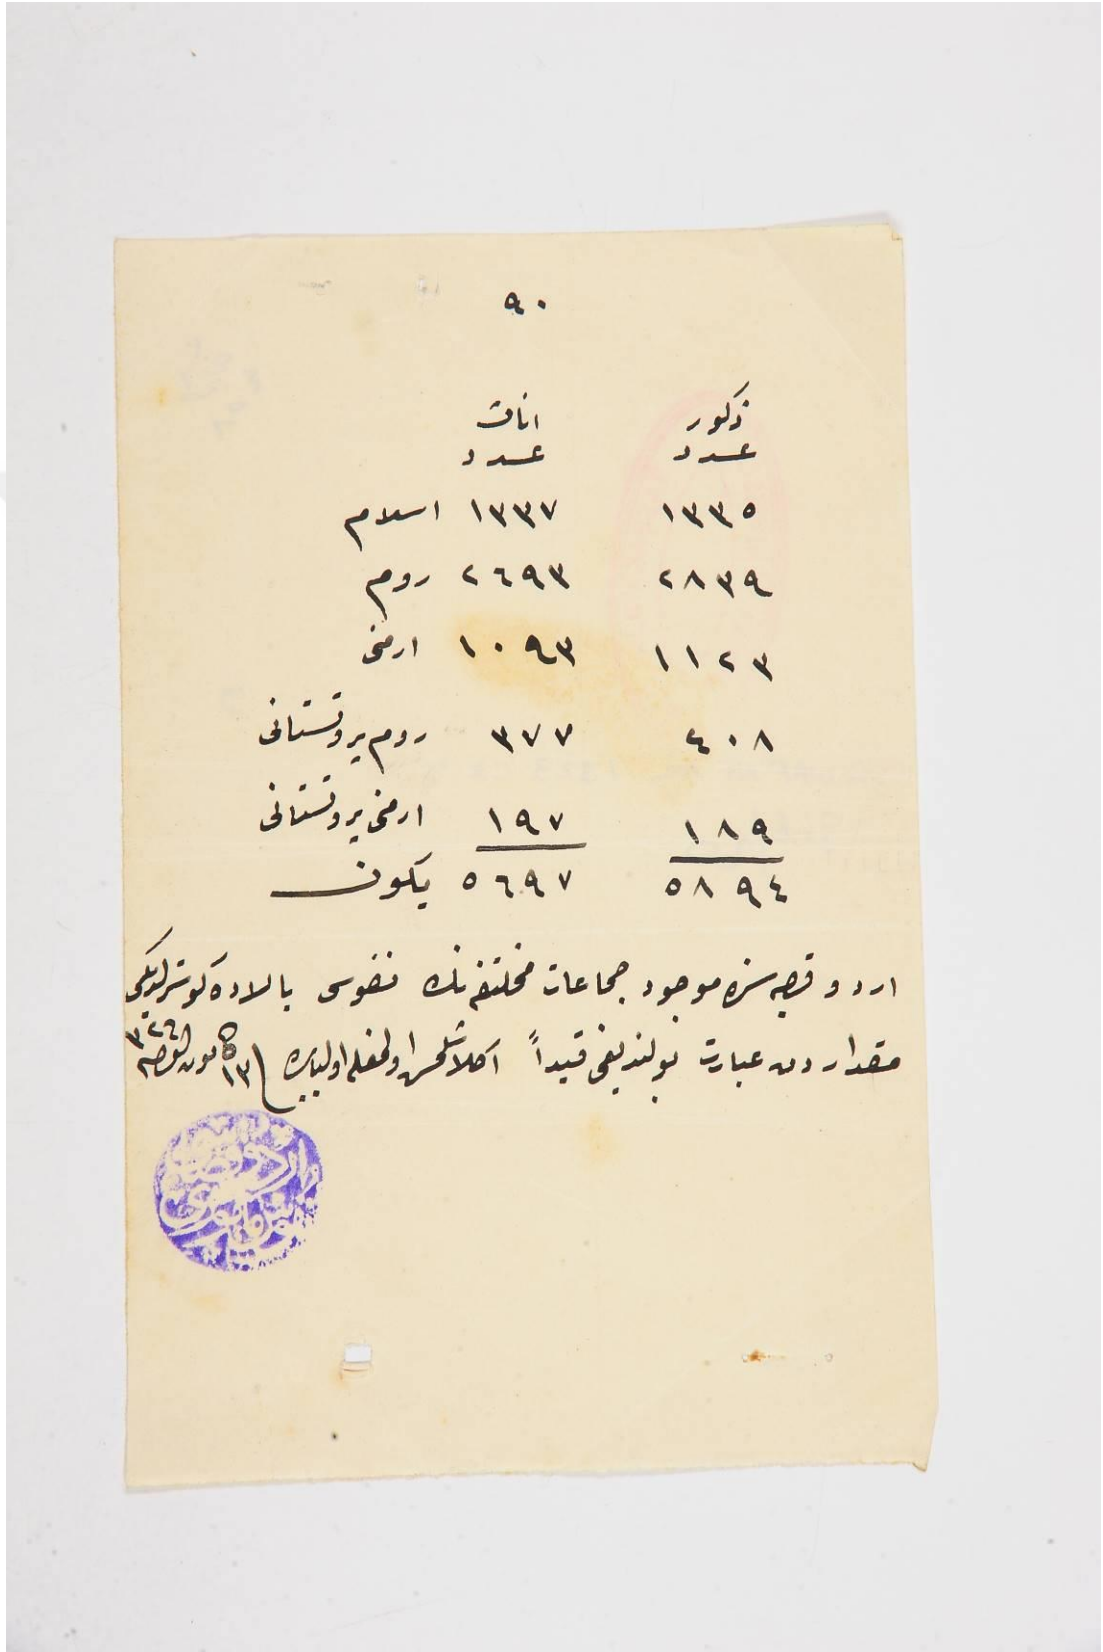 ٩٠
ذكور اناث
عدد عدد
١٣٣٥ ١٣٣٧ اسلام
٢٨٣٩ ٢٦٩٣ روم
١١٢٣ ١٠٩٣ ارمنى
٤٠٨ ٣٧٧ روم پروتستانى
١٨٩ ١٩٧ ارمنى پروتستانى
٥٨٩٤ ٥٦٩٧ يكون
اردو قصبه سنده موجود جماعات مختلفه نك نفوسى بالاده كوستريلن
مقداردن عبارت بولنديغى قيداً اكلاشلمش اولمغله ١٣ كانون ٣٢٦